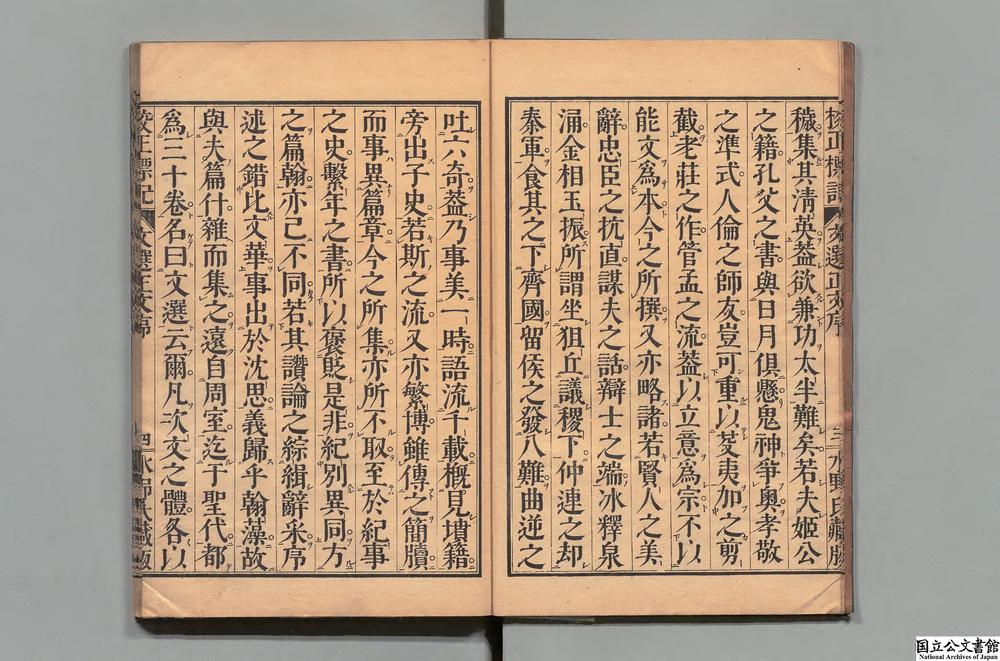 穢集其淸英葢欲兼功太半難矣若夫姬公
之籍孔父之書與日月俱懸鬼神爭奧孝敬
之準式人倫之師友豈可重以芟夷加之剪
截老莊之作管孟之流葢以立意爲宗不以
能文爲本今之所撰又亦略諸若賢人之美
辭忠臣之抗直謀夫之話辯士之端冰釋泉
涌金相玉振所謂坐狙丘議稷下仲連之却
秦軍食其之下齊國留侯之發八難曲逆之
吐六奇葢乃事美一時語流千載槪見墳籍
旁出子史若斯之流又亦繁博雖傳之簡牘
而事異篇章今之所集亦所不取至於紀事
之史繫年之書所以褒貶是非紀別異同方
之篇翰亦已不同若其讚論之綜緝辭采序
述之錯比文華事出於沈思義歸乎翰藻故
與夫篇什雜而集之遠自周室迄于聖代都
爲三十卷名曰文選云爾凡次文之體各以
校正標記 文選正文序 四
国立公文書館
National Archives of Japan